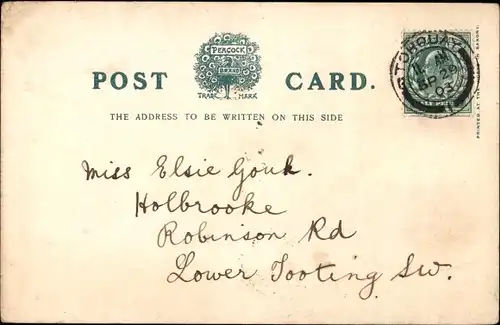 PEACOCK
BRAND
TRADE MARK
POST CARD.
THE ADDRESS TO BE WRITTEN ON THIS SIDE
TORQUAY
AP 24
03
PRINTED AT THE
Miss Elsie Gouk.
Holbrooke
Robinson Rd
Lower Tooting SW.